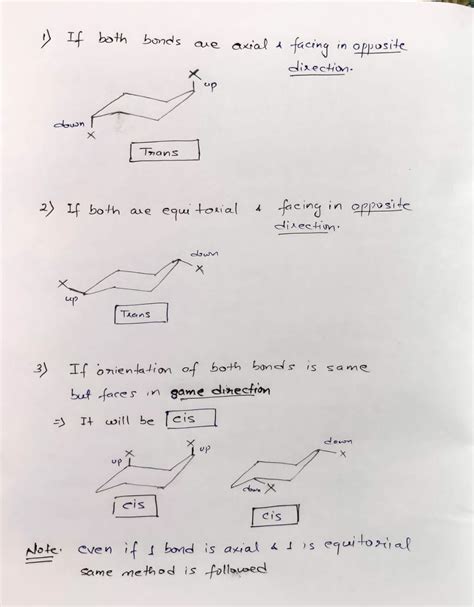 1) If both bonds are axial & facing in opposite
direction.
X
up
down
X
Trans
2) If both are equitorial & facing in opposite
direction.
down
X
X
up
Trans
3) If orientation of both bonds is same
but faces in same direction
=> It will be cis
X
up
X
up
down
X
down X
cis
cis
Note. even if 1 bond is axial & 1 is equitorial
same method is followed